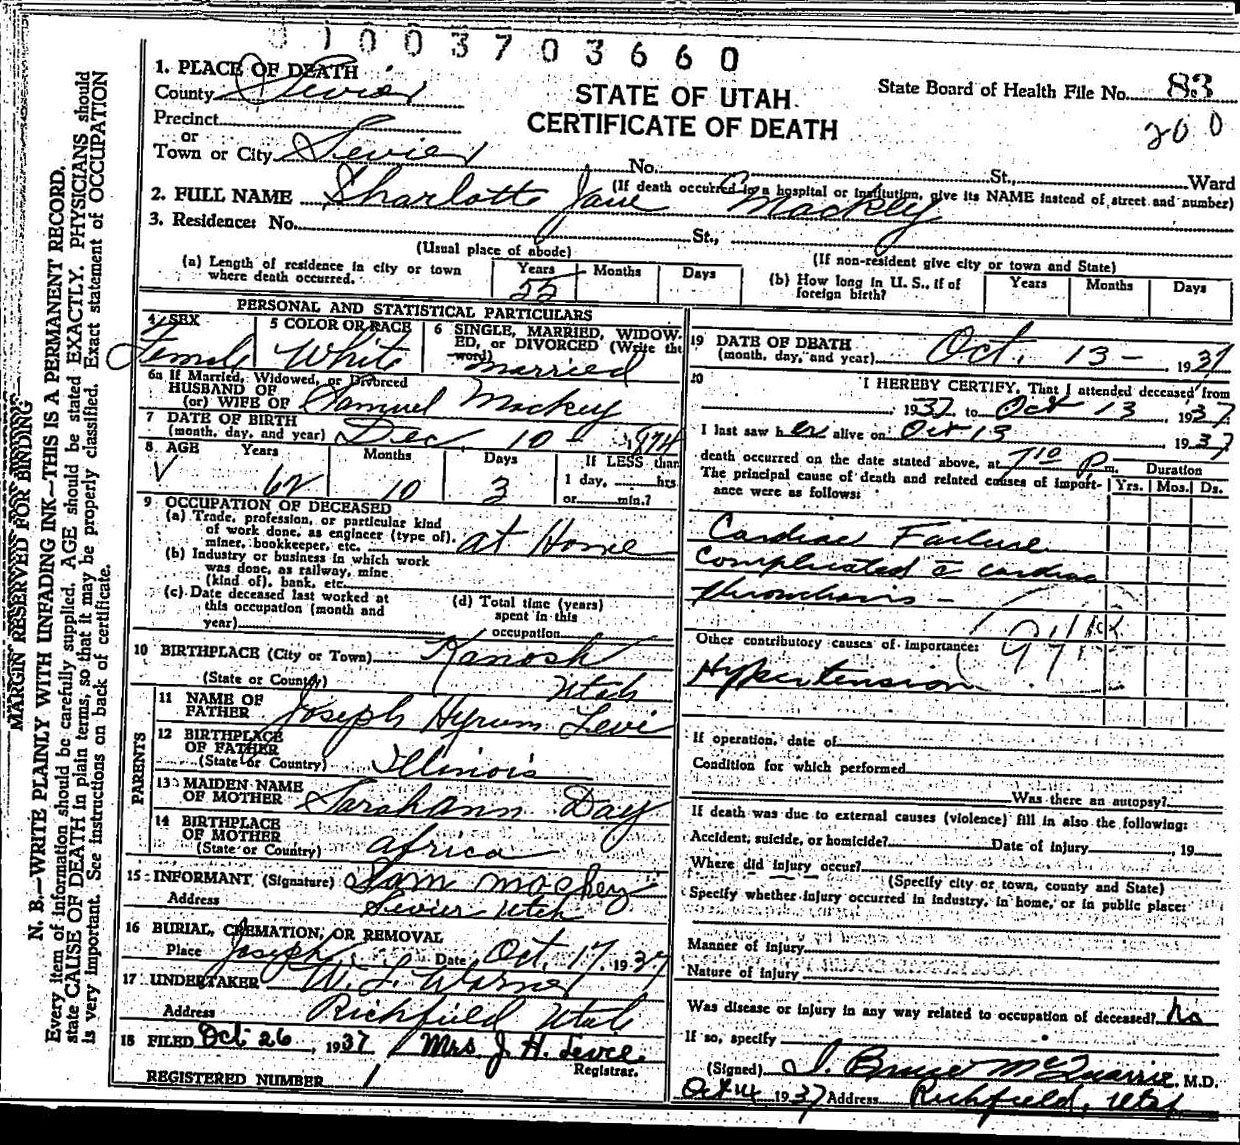 01003703660
1. PLACE OF DEATH
County Sevier
STATE OF UTAH
CERTIFICATE OF DEATH
State Board of Health File No. 83
200
Precinct
or
Town or City Sevier No. St., Ward
(If death occurred in a hospital or institution, give its NAME instead of street and number)
2. FULL NAME Sharlotte Jane Mackey
3. Residence: No. St.,
(Usual place of abode) (If non-resident give city or town and State)
(a) Length of residence in city or town where death occurred. Years 55 Months Days
(b) How long in U. S., if of foreign birth? Years Months Days
PERSONAL AND STATISTICAL PARTICULARS
4 SEX Female
5 COLOR OR RACE White
6 SINGLE, MARRIED, WIDOWED, or DIVORCED (Write the word) married
6a If Married, Widowed, or Divorced
HUSBAND OF
(or) WIFE OF Samuel Mackey
7 DATE OF BIRTH
(month, day, and year) Dec 10 - 1874
8 AGE Years 62 Months 10 Days 3 If LESS than 1 day, hrs. or min.?
9 OCCUPATION OF DECEASED
(a) Trade, profession, or particular kind of work done, as engineer (type of), miner, bookkeeper, etc. at Home
(b) Industry or business in which work was done, as railway, mine (kind of), bank, etc.
(c) Date deceased last worked at this occupation (month and year)
(d) Total time (years) spent in this occupation
10 BIRTHPLACE (City or Town) Kanosh
(State or County) Utah
PARENTS
11 NAME OF FATHER Joseph Hyrum Levi
12 BIRTHPLACE OF FATHER
(State or Country) Illinois
13 MAIDEN NAME OF MOTHER Sarah Ann Day
14 BIRTHPLACE OF MOTHER
(State or Country) Africa
15 INFORMANT (Signature) Sam Mackey
Address Sevier Utah
16 BURIAL, CREMATION, OR REMOVAL
Place Joseph Date Oct. 17. 1937
17 UNDERTAKER W. L. Warner
Address Richfield Utah
18 FILED Oct 26, 1937 Mrs J. H. Levie
Registrar.
REGISTERED NUMBER 1
19 DATE OF DEATH
(month, day, and year) Oct. 13 - , 1937
20 I HEREBY CERTIFY, That I attended deceased from
, 1937, to Oct 13, 1937
I last saw her alive on Oct 13, 1937
death occurred on the date stated above, at 7 10 P m.
Duration
The principal cause of death and related causes of importance were as follows: Yrs. Mos. Ds.
Cardiac Failure
Complicated c cardiac
Thrombosis -
Other contributory causes of importance:
Hypertension
If operation, date of
Condition for which performed
Was there an autopsy?
If death was due to external causes (violence) fill in also the following:
Accident, suicide, or homicide? Date of injury , 19
Where did injury occur?
(Specify city or town, county and State)
Specify whether injury occurred in industry, in home, or in public place:
Manner of injury
Nature of injury
Was disease or injury in any way related to occupation of deceased? No
If so, specify
(Signed) I. Bruce McQuarrie, M.D.
Oct 14 1937 Address Richfield, Utah
MARGIN RESERVED FOR BINDING
N. B.—WRITE PLAINLY WITH UNFADING INK—THIS IS A PERMANENT RECORD.
Every item of information should be carefully supplied. AGE should be stated EXACTLY. PHYSICIANS should
state CAUSE OF DEATH in plain terms, so that it may be properly classified. Exact statement of OCCUPATION
is very important. See instructions on back of certificate.